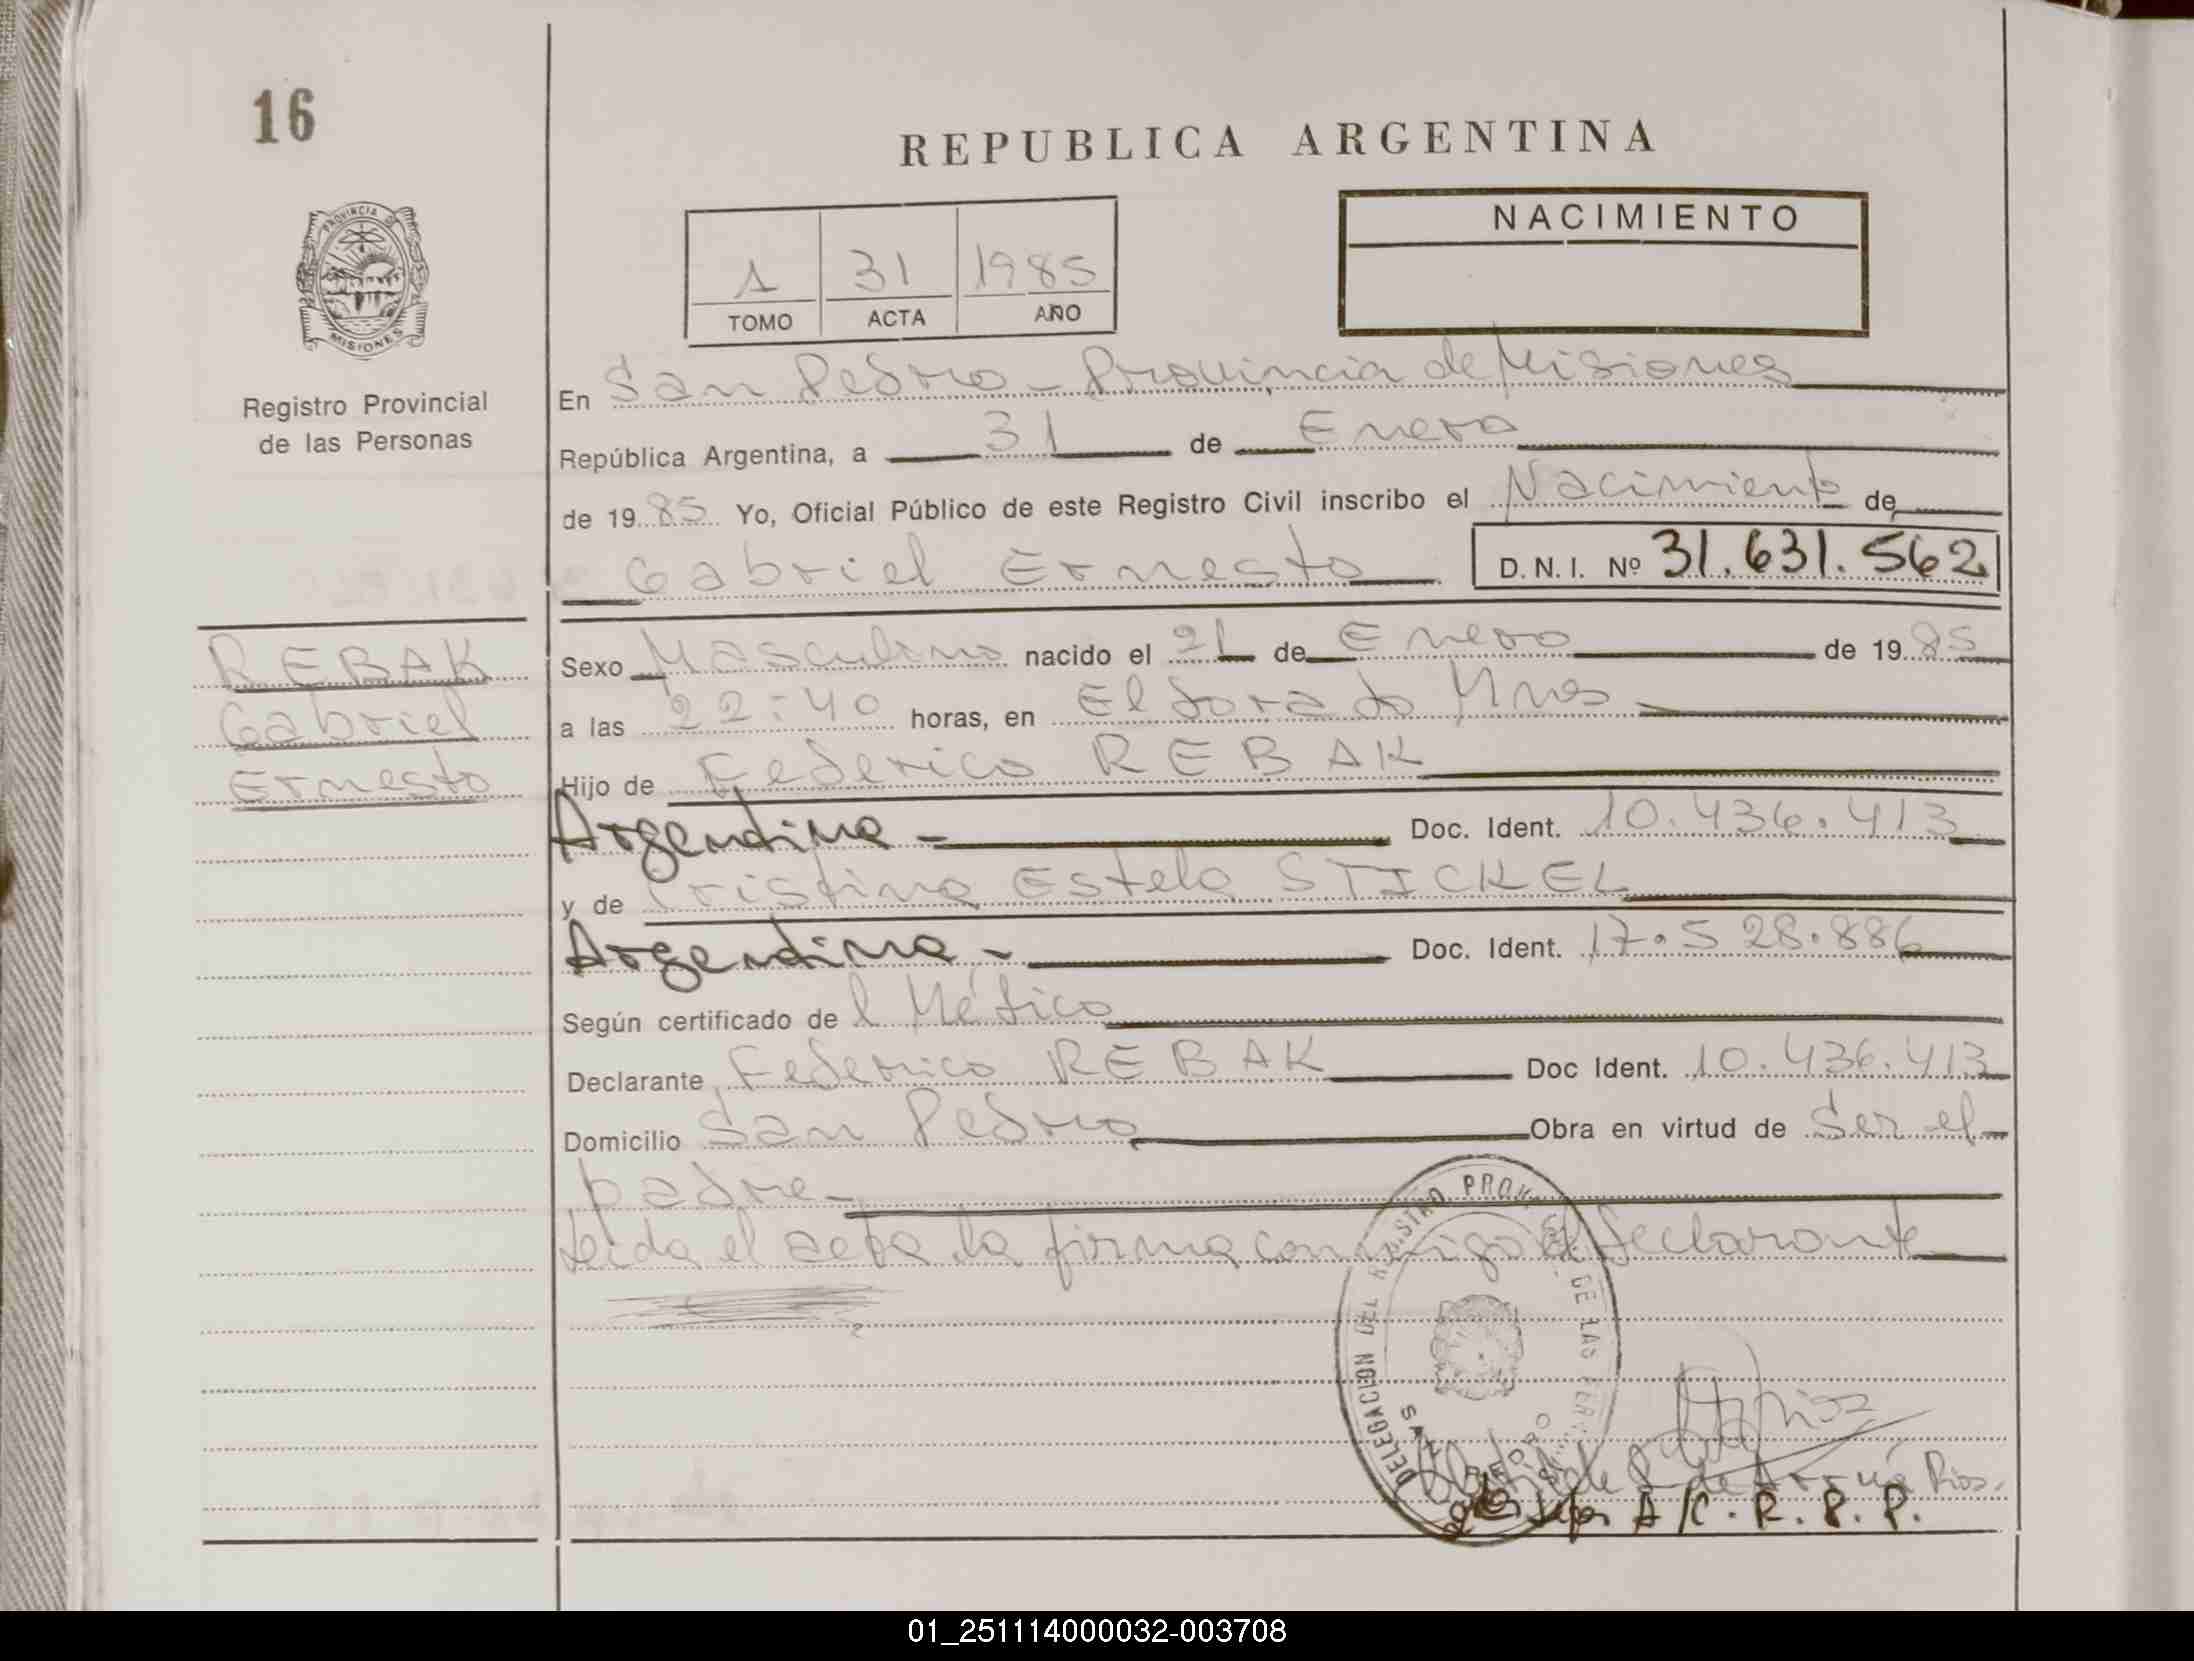 16
REPUBLICA ARGENTINA
NACIMIENTO
1 31 1985
TOMO ACTA AÑO
PROVINCIA DE MISIONES
Registro Provincial
de las Personas
En San Pedro - Provincia de Misiones
República Argentina, a 31 de Enero
de 1985 Yo, Oficial Público de este Registro Civil inscribo el Nacimiento de
Gabriel Ernesto D.N.I. Nº 31.631.562
REBAK
Gabriel
Ernesto
Sexo Masculino nacido el 21 de Enero de 1985
a las 22:40 horas, en Eldorado Mnes
Hijo de Federico REBAK
Argentina - Doc. Ident. 10.436.413
y de Cristina Estela STICKEL
Argentina - Doc. Ident. 17.528.886
Según certificado del Médico
Declarante Federico REBAK Doc Ident. 10.436.413
Domicilio San Pedro Obra en virtud de Ser el
padre-
Leida el acta la firma conmigo el declarante
DELEGACION DEL REGISTRO PROV. DE LAS PER
SAN PEDRO
de Arrua Rios.
A/C. R. P. P.
01_251114000032-003708